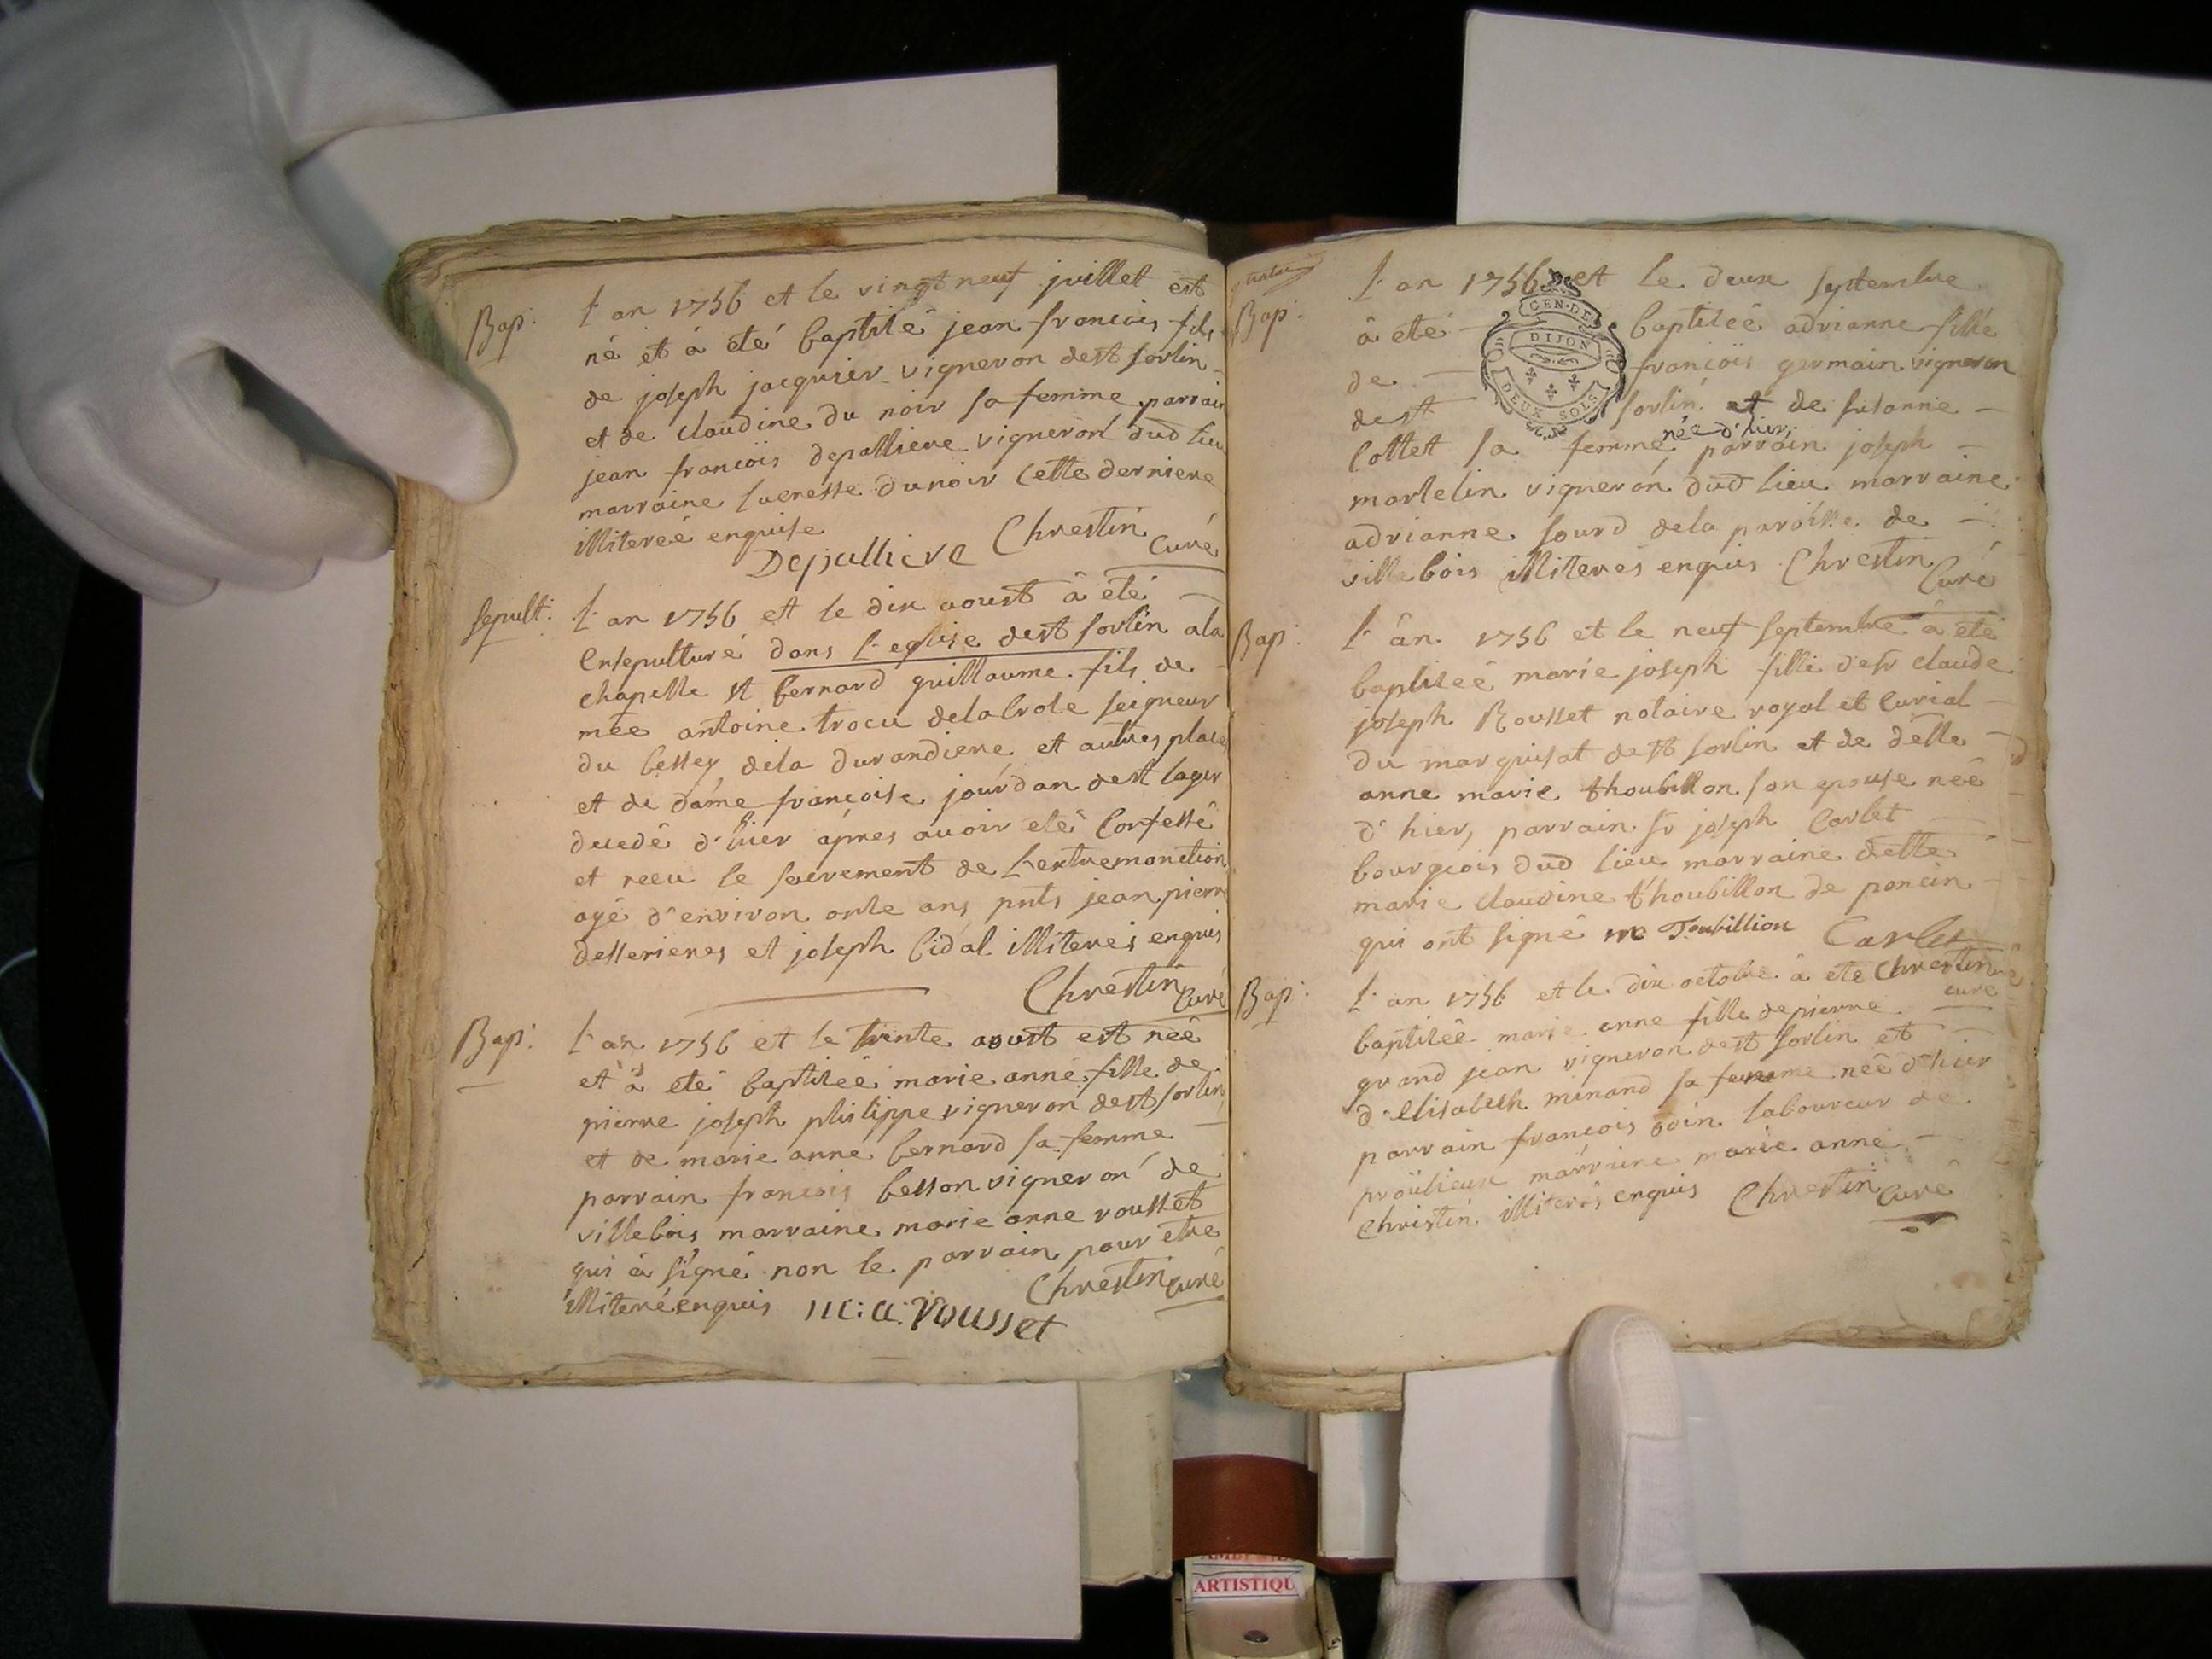 Bap:
L'an 1756 et le vingt neuf juillet est
né et à été baptisé jean francois fils
de joseph jacquier vigneron de st sorlin
et de claudine du noir sa femme parrain
jean francois depalliere vigneron dud lieu
marraine lucresse dunoir cette derniere
illitereé enquise
Depalliere Chrestin Curé
Sepult:
L'an 1756 et le dix aoust à été
Ensepulturé dans l'eglise de st sorlin a la
chapelle st bernard guillaume fils de
mre antoine trocu delacrose seigneur
du bessey dela durandiere et autres places
et de dame francoise jourdan de st lager
decedé d'hier apres avoir eté Confessé
et receu le sacrement de l'extremonction
agé d'environ onse ans pnts jean pierre
desserieres et joseph bidal illiterés enquis
Chrestin Curé
Bap:
L'an 1756 et le trente aoust est neé
et à eté baptiseé marie anne fille de
pierre joseph philippe vigneron de st sorlin
et de marie anne bernard sa femme
parrain francois besson vigneron de
villebois marraine marie anne rousset
qui à signé non le parrain pour etre
illiteré enquis Chrestin curé
m: a: Rousset
Bap:
L'an 1756 et le deux septembre
à eté baptiseé adrianne fille
de francois germain vigneron
de st sorlin et de susanne
née d'hier
Cottet sa femme parrain joseph
martelin vigneron dud lieu marraine
adrianne sourd dela paroisse de
villebois illiterés enquis Chrestin Curé
GEN. DE
DIJON
DEUX SOLS
Bap:
L'an 1756 et le neuf septembre à eté
baptiseé marie joseph fille de sr claude
joseph Rousset notaire royal et Curial
du marquisat de st sorlin et de delle
anne marie thoubillon son epouse neé
d'hier, parrain sr joseph Carlet
bourgeois dud lieu marraine delle
marie claudine thoubillon de poncin
qui ont signé m Toubillion Carlet
Chrestin curé
Bap:
L'an 1756 et le dix octobre à eté
baptiseé marie anne fille de pierre
grand jean vigneron de st sorlin et
d'elisabeth minand sa femme neé d'hier
parrain francois laboureur de
proulieux marraine marie anne
Christin illiterés enquis Chrestin Curé
ARTISTIQU